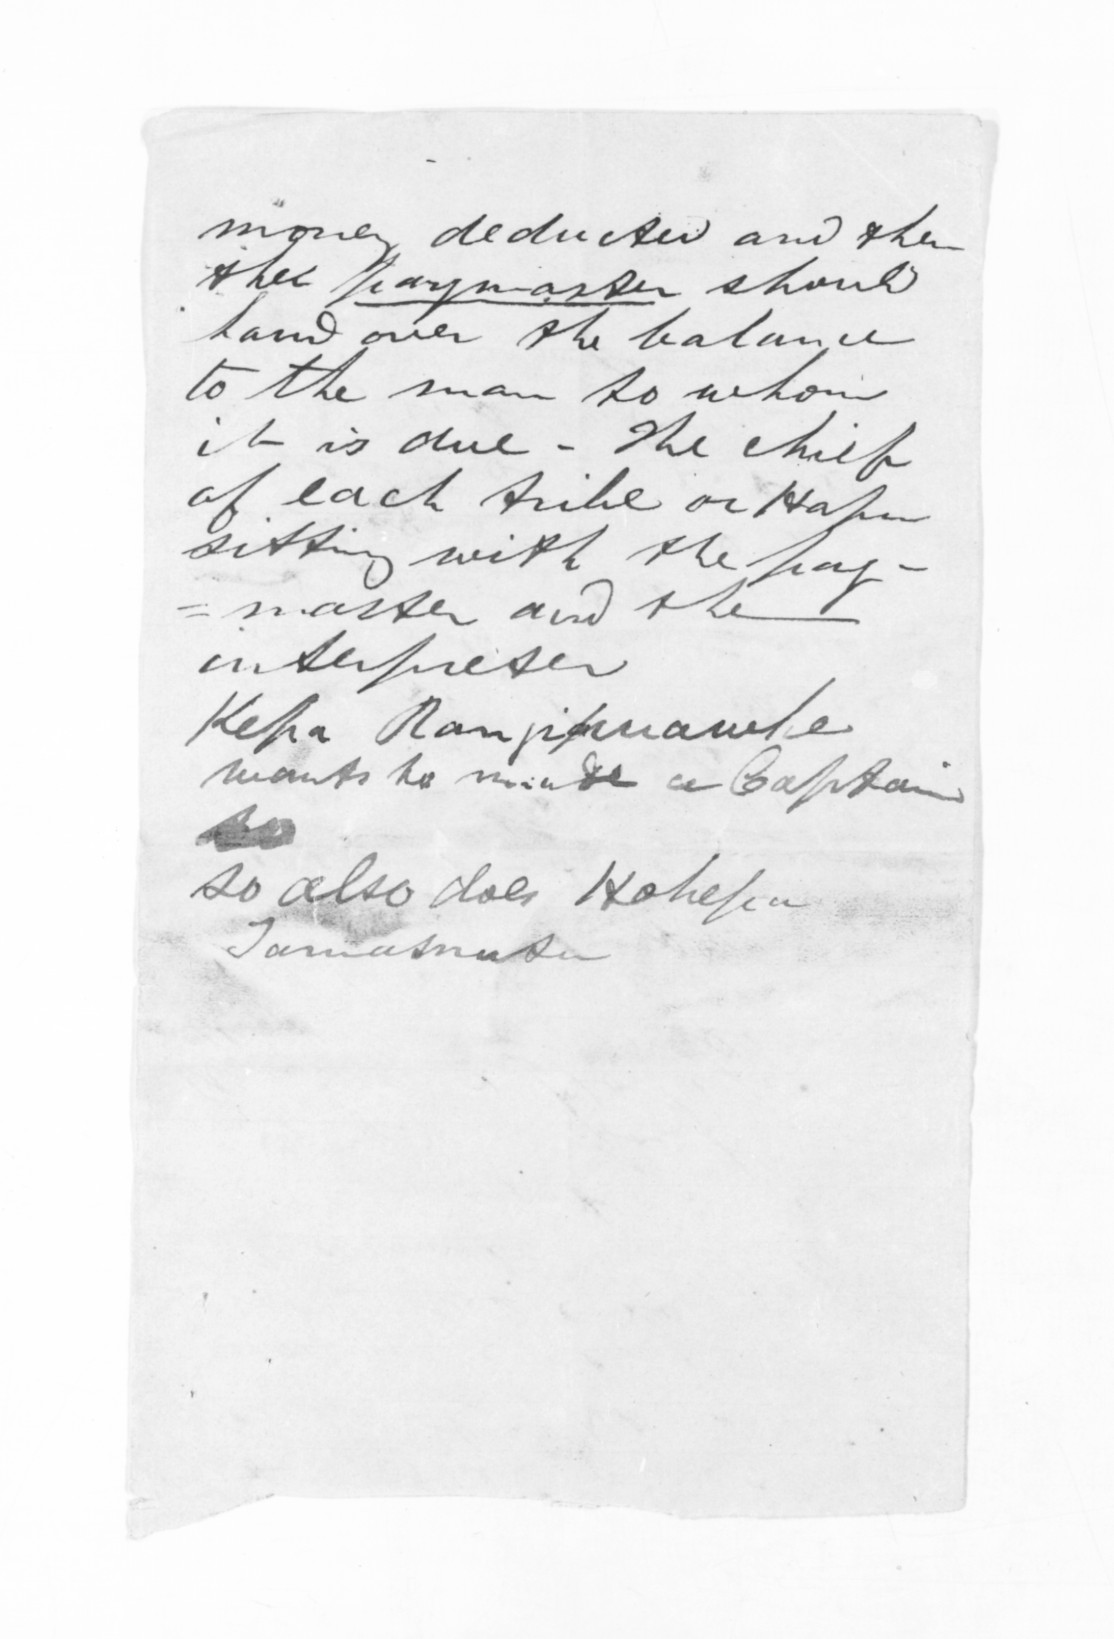 money deducted and then
the paymaster should
hand over the balance
to the man to whom
it is due - The chief
of each tribe or Hapu
sitting with the pay-
=master and the
interpreter
Kepa Rangipuawhe
wants to made a Captain
so
so also does Hohepa
Tamamutu